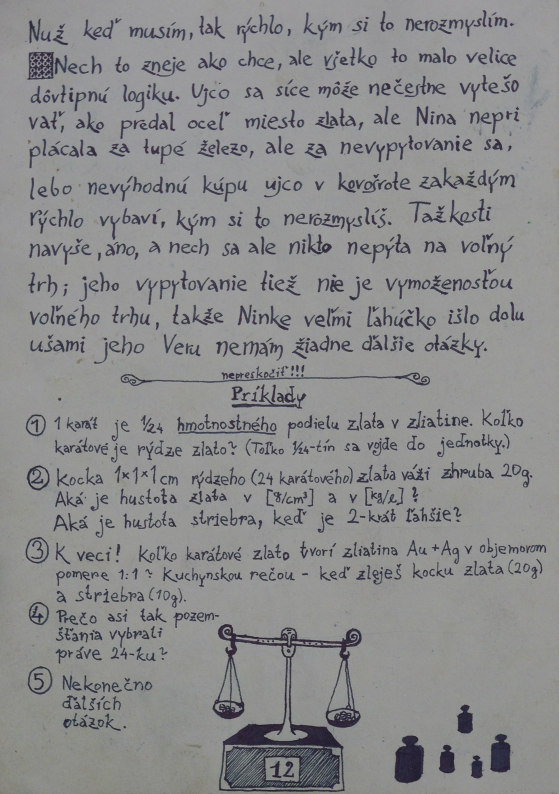 Nuž keď musím, tak rýchlo, kým si to nerozmyslím.
Nech to zneje ako chce, ale všetko to malo velice
dôvtipnú logiku. Ujco sa síce môže nečestne vytešo
vať, ako predal oceľ miesto zlata, ale Nina nepri
plácala za tupé železo, ale za nevypytovanie sa,
lebo nevýhodnú kúpu ujco v kovošrote zakaždým
rýchlo vybaví, kým si to nerozmyslíš. Ťažkosti
navyše, áno, a nech sa ale nikto nepýta na voľný
trh; jeho vypytovanie tiež nie je vymoženosťou
voľného trhu, takže Ninke veľmi ľahúčko išlo dolu
ušami jeho Veru nemám žiadne ďalšie otázky.
nepreskočiť!!!
Príklady
1 1 karát je 1/24 hmotnostného podielu zlata v zliatine. Koľko
karátové je rýdze zlato? (Toľko 1/24-tín sa vojde do jednotky.)
2 Kocka 1×1×1 cm rýdzeho (24 karátového) zlata váži zhruba 20g.
Aká je hustota zlata v [g/cm³] a v [kg/l] ?
Aká je hustota striebra, keď je 2-krát ľahšie?
3 K veci! Koľko karátové zlato tvorí zliatina Au+Ag v objemovom
pomere 1:1 ? Kuchynskou rečou – keď zleješ kocku zlata (20g)
a striebra (10g).
4 Prečo asi tak pozem-
šťania vybrali
práve 24-ku?
5 Nekonečno
ďalších
otázok.
12